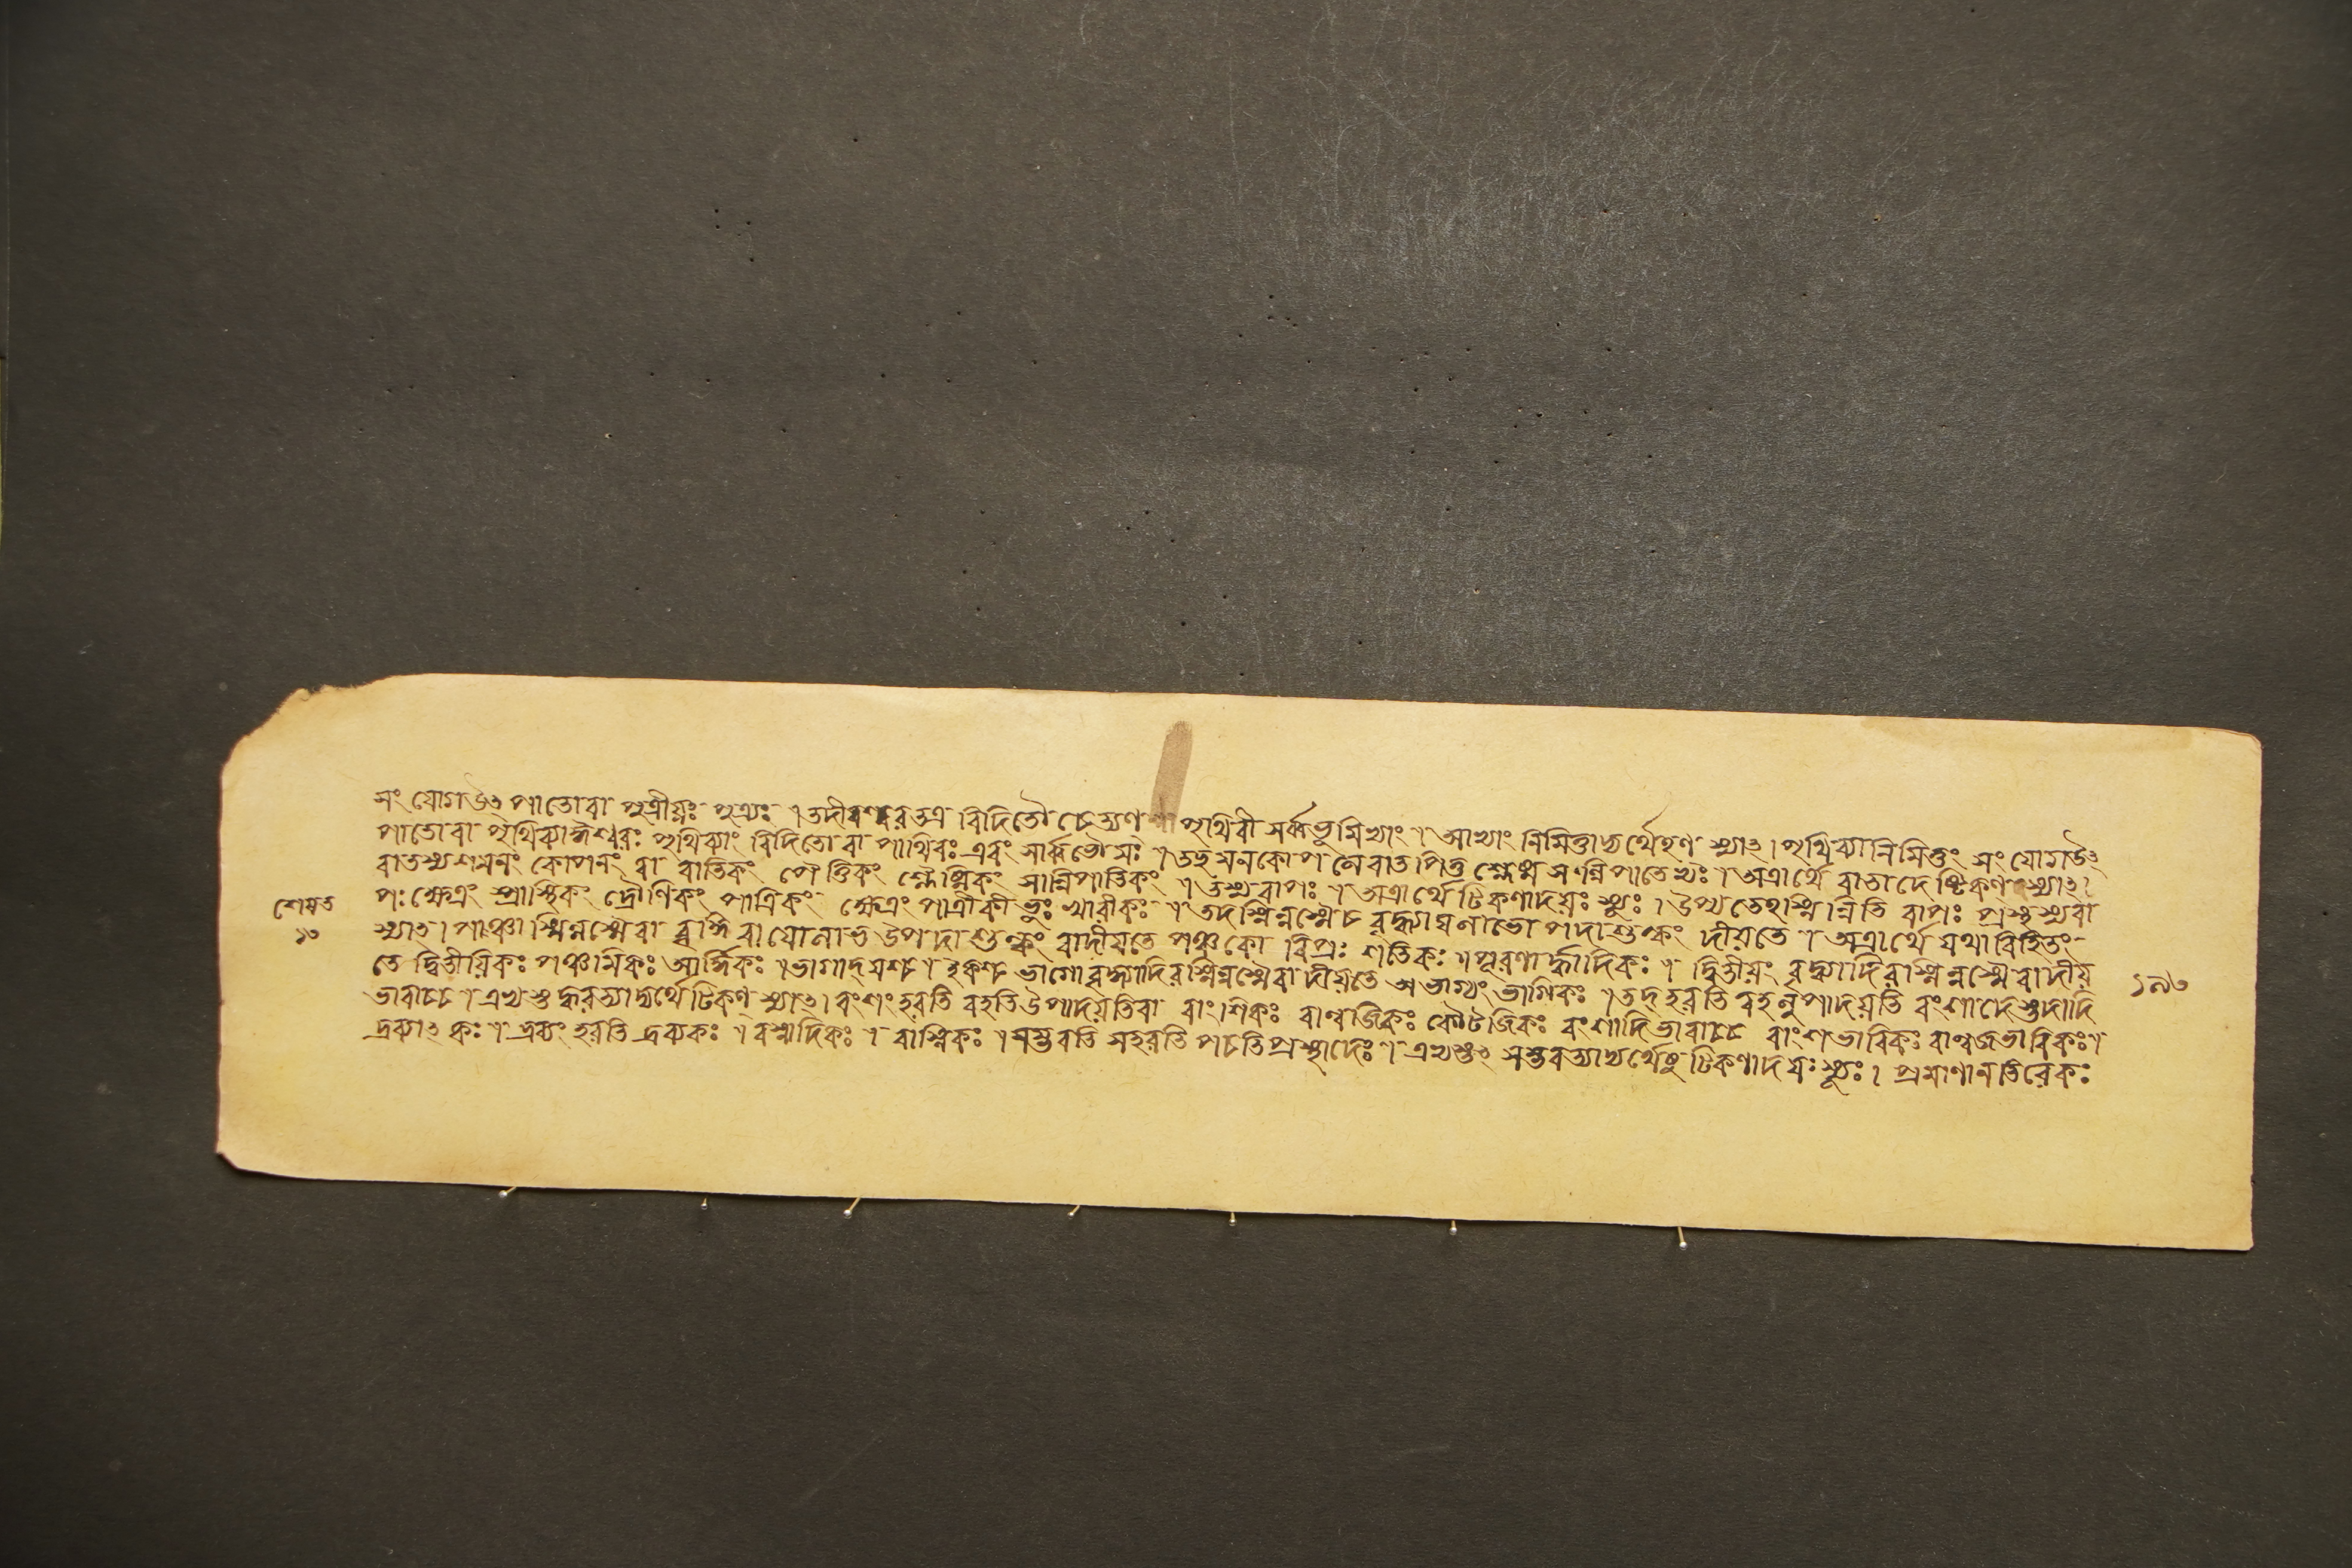 সংযোগউৎপাতোবা পুত্রীয়ঃ পুত্র্যঃ ৷ তদীশ্বরতত্র বিদিতৌ চেত্যণ পৃথিবী সর্ব্বভূমিভ্যাং ৷ আভ্যাং নিমিত্তাদ্যর্থেহণ্ স্যাৎ। পৃথিব্যানিমিত্তং সংযোগউৎ
পাতোবা পৃথিব্যাঈশ্বরঃ পৃথিব্যাং বিদিতো বা পার্থিবঃ এবং সার্ব্বভৌমঃ ৷ তচ্ছমনকোপনেবাতপিত্তশ্লেষ্মসন্নিপাতেভ্যঃ ৷ অত্রার্থে বাতাদেষ্টিকণ্ স্যাৎ।
বাতস্যশমনং কোপনং বা বাতিকং পৈত্তিকং শ্লৈষ্মিকং সান্নিপাতিকং ৷ তস্যবাপঃ ৷ অত্রার্থে টিকণাদয়ঃ স্যুঃ । উপ্যতেহস্মিন্নিতি বাপঃ প্রস্থস্যবা
পঃ ক্ষেত্রং প্রাস্থিকং দ্রৌণিকং পাত্রিকং ক্ষেত্রং পাত্রীকী ভূঃ খারীকঃ ৷ তদস্মিন্নস্মৈচ বৃদ্ধ্যায়লাভোপদাশুল্কং দীয়তে ৷ অত্রার্থে যথাবিহিতং
স্যাৎ। পঞ্চাস্মিন্নস্মৈবা বৃদ্ধি বাযোলাভ উপদা শুল্কং বাদীয়তে পঞ্চকো বিপ্রঃ শতিকঃ ৷ পূরণার্দ্ধাদিকঃ ৷ দ্বিতীয়ং বৃদ্ধ্যাদিরস্মিন্নস্মৈবাদীয়
তে দ্বিতীয়িকঃ পঞ্চমিকঃ আর্দ্ধিকঃ ৷ ভাগাদ্যশ্চ ৷ ইকশ্চ ভাগোবৃদ্ধ্যাদিরস্মিন্নস্মৈবা দীয়তে অভাগ্যং ভাগিকঃ ৷ তদ্হরতি বহত্যুৎপাদয়তি বংশাদেস্তদাদি
ভারাচ্চ ৷ এভ্যস্তদ্ধরত্যাদ্যর্থে টিকণ্ স্যাৎ। বংশং হরতি বহতিউৎপাদয়তিবা বাংশিকঃ বাল্বজিকঃ কৌটজিকঃ বংশাদিভারাচ্চ বাংশভারিকঃ বাল্বজভারিকঃ ৷
দ্রব্যাৎ কঃ ৷ দ্রব্যং হরতি দ্রব্যকঃ ৷ বস্নাদিকঃ ৷ বাস্নিকঃ ৷ সম্ভবতি সহরতি পচতিপ্রস্থাদেঃ ৷ এভ্যস্তৎ সম্ভবত্যাদ্যর্থেষু টিকণাদয়ঃ স্যুঃ । প্রমাণানতিরেকঃ
১০
১৯০